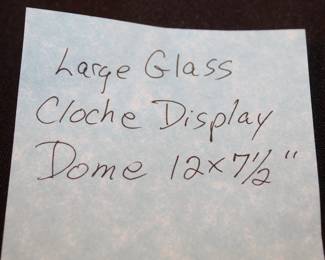 Large Glass
Cloche Display
Dome 12x7½"